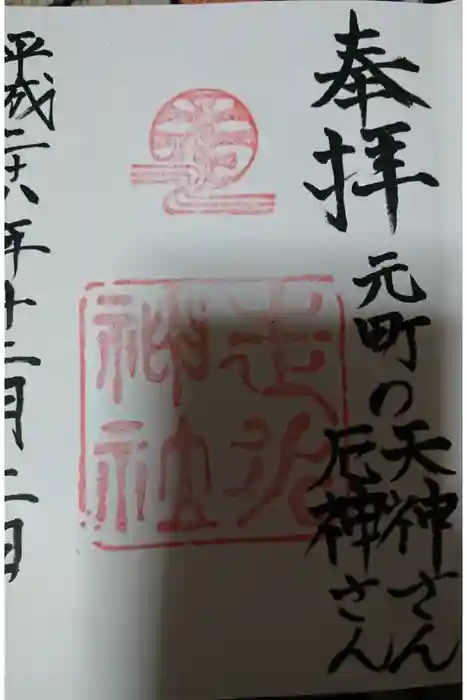 奉拝
元町の
天神さん
厄神さん
走水
神社
平成年十二月二日